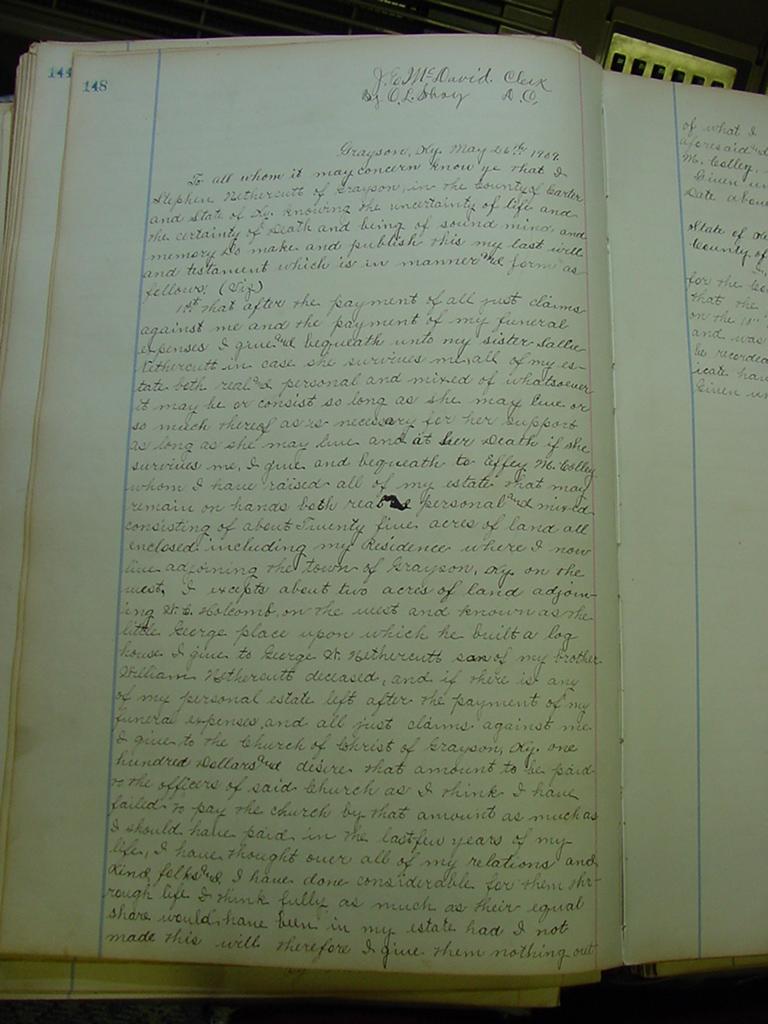 144
148
J. E. McDavid. Clerk
By O. L. D. C.
Grayson, Ky. May 26th, 1909.
To all whom it may concern know ye that I
Stephen Nethercutt of Grayson, in the County of Carter
and State of Ky. knowing the uncertainty of life and
the certainty of Death and being of sound mind, and
memory Do make and publish this my last will
and testament which is in manner and form as
follows: (Viz)
1st That after the payment of all just claims
against me and the payment of my funeral
expenses I give and bequeath unto my sister Sallie
Nethercutt in case she survives me, all of my es-
tate both real & personal and mixed of whatsoever
it may be or consist so long as she may live or
so much thereof as is necessary for her support
as long as she may live and at her Death if she
survives me, I give and bequeath to Effey M. Colley
whom I have raised all of my estate that may
remain on hands both real & personal and mixed
consisting of about Twenty five acres of land all
enclosed including my Residence where I now
live adjoining the town of Grayson, Ky. on the
west, I excepts about two acres of land adjoin-
ing Holcomb, on the west and known as the
little George place upon which he built a log
house I give to George W. Nethercutt son of my brother
William Nethercutt deceased, and if there is any
of my personal estate left after the payment of my
funeral expenses, and all just claims against me
I give to the Church of Christ of Grayson, Ky. one
hundred Dollars and desire that amount to be paid
to the officers of said Church as I think I have
failed to pay the church by that amount as much as
I should have paid in the last few years of my
life, I have thought over all of my relations and
kind folks and I have done considerable for them thr-
rough life I think fully as much as their equal
share would have been in my estate had I not
made this will therefore I give them nothing out
of what I
aforesaid and
M. Colley.
Given un
Date abov
State of
County of
for the
that the
on the 11"
and was
be recorded
icate hav
Given un